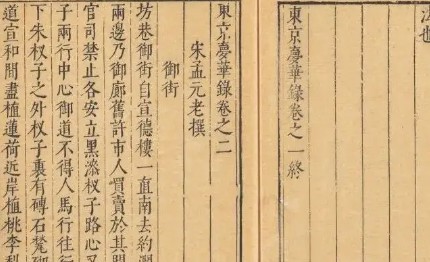 也
東京夢華錄卷之一終
東京夢華錄卷之二
宋孟元老撰
御街
坊巷御街自宣德樓一直南去約闊
兩邊乃御廊舊許市人買賣於其間
官司禁止各安立黑漆杈子路心又
子兩行中心御道不得人馬行往行
下朱杈子之外杈子裏有磚石甃砌
道宣和間盡植蓮荷近岸植桃李梨